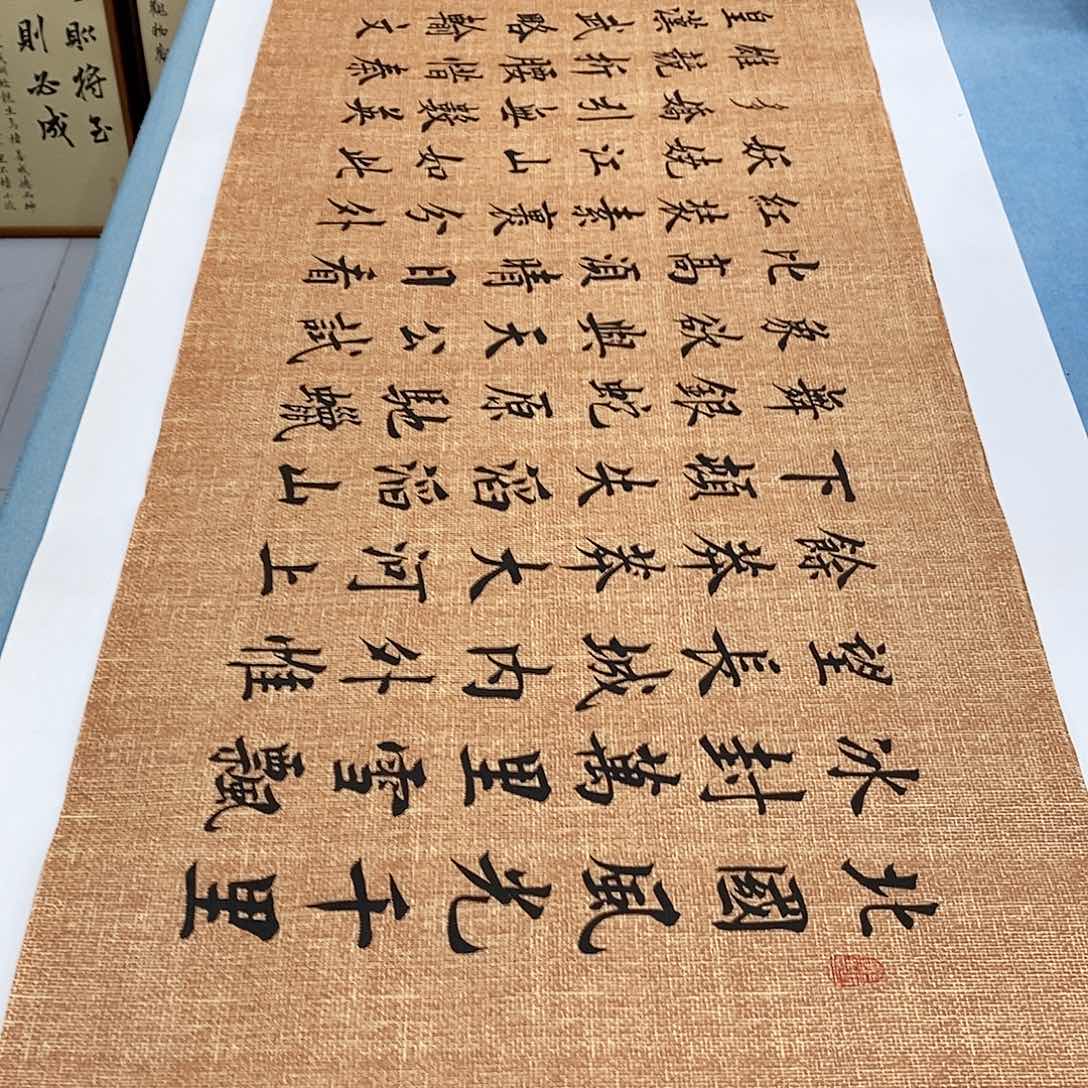 北國風光千里
冰封萬里雪飄
望長城內外惟
餘莽莽大河上
下頓失滔滔山
舞銀蛇原馳蠟
象欲與天公試
比高須晴日看
紅裝素裹分外
妖嬈江山如此
多嬌引無數英
雄競折腰惜秦
皇漢武略輸文
則必成